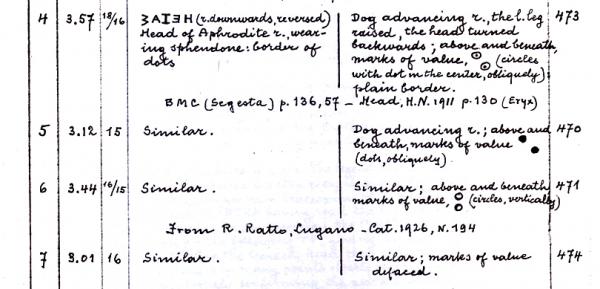 4 3.57 18/16 ƷAIƎH (r. downwards, reversed) Dog advancing r., the l. leg 473
Head of Aphrodite r., wear- raised, the head turned
ing sphendone: border of backwards; above and beneath,
dots marks of value, ⊙ ⊙ (circles
with dot in the center, obliquely):
plain border.
BMC (Segesta) p. 136, 57 – Head, H.N. 1911 p. 130 (Eryx)
5 3.12 15 Similar. Dog advancing r.; above and 470
beneath, marks of value • •
(dots, obliquely).
6 3.44 16/15 Similar. Similar; above and beneath 471
marks of value, ○ ○ (circles, vertically)
From R. Ratto, Lugano - Cat. 1926, N. 194
7 3.01 16 Similar. Similar; marks of value 474
defaced.